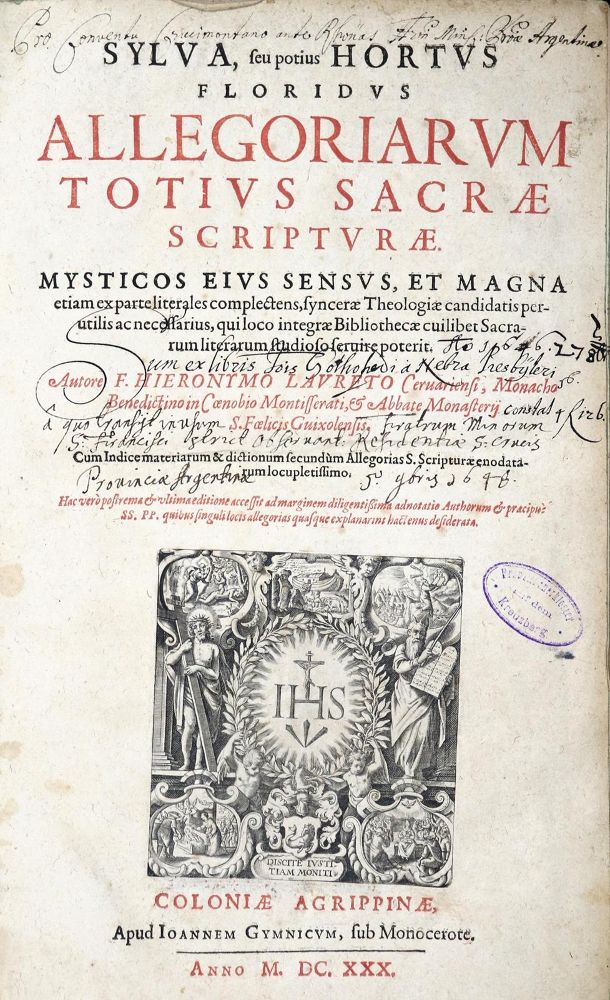 Pro Conventu Crucimontano ante Rhenas Min: Argentinae
SYLVA, seu potius HORTVS
FLORIDVS
ALLEGORIARVM
TOTIVS SACRÆ
SCRIPTVRÆ.
MYSTICOS EIVS SENSVS, ET MAGNA
etiam ex parte literales complectens, synceræ Theologiæ candidatis per-
utilis ac necessarius, qui loco integræ Bibliothecæ cuilibet Sacra-
rum literarum studioso seruire poterit. Ao 1646.
Sum ex libris Gothofredi à Kebra Presbyteri
Autore F. HIERONYMO LAVRETO Ceruariensi, Monacho
Benedictino in Cœnobio Montisserati, & Abbate Monasterij constat 4 Rixb.
S. Fœlicis Guixolensis.
â quo transijt in usum fratrum Minorum
S. Francisci strict Observant: S. Crucis
Cum Indice materiarum & dictionum secundùm Allegorias S. Scripturæ enodata-
rum locupletissimo.
Provinciæ Argentinæ 5 9bris 1646.
Hac verò postrema & vltima editione accessit ad marginem diligentissima adnotatio Authorum & præcipuè
SS. PP. quibus singuli locis allegorias quasque explanarint hactenus desiderata.
Franziskanerkloster
auf dem
Kreuzberg
IHS
DISCITE IVSTI-
TIAM MONITI
COLONIÆ AGRIPPINÆ,
Apud IOANNEM GYMNICVM, sub Monocerote.
ANNO M. DC. XXX.